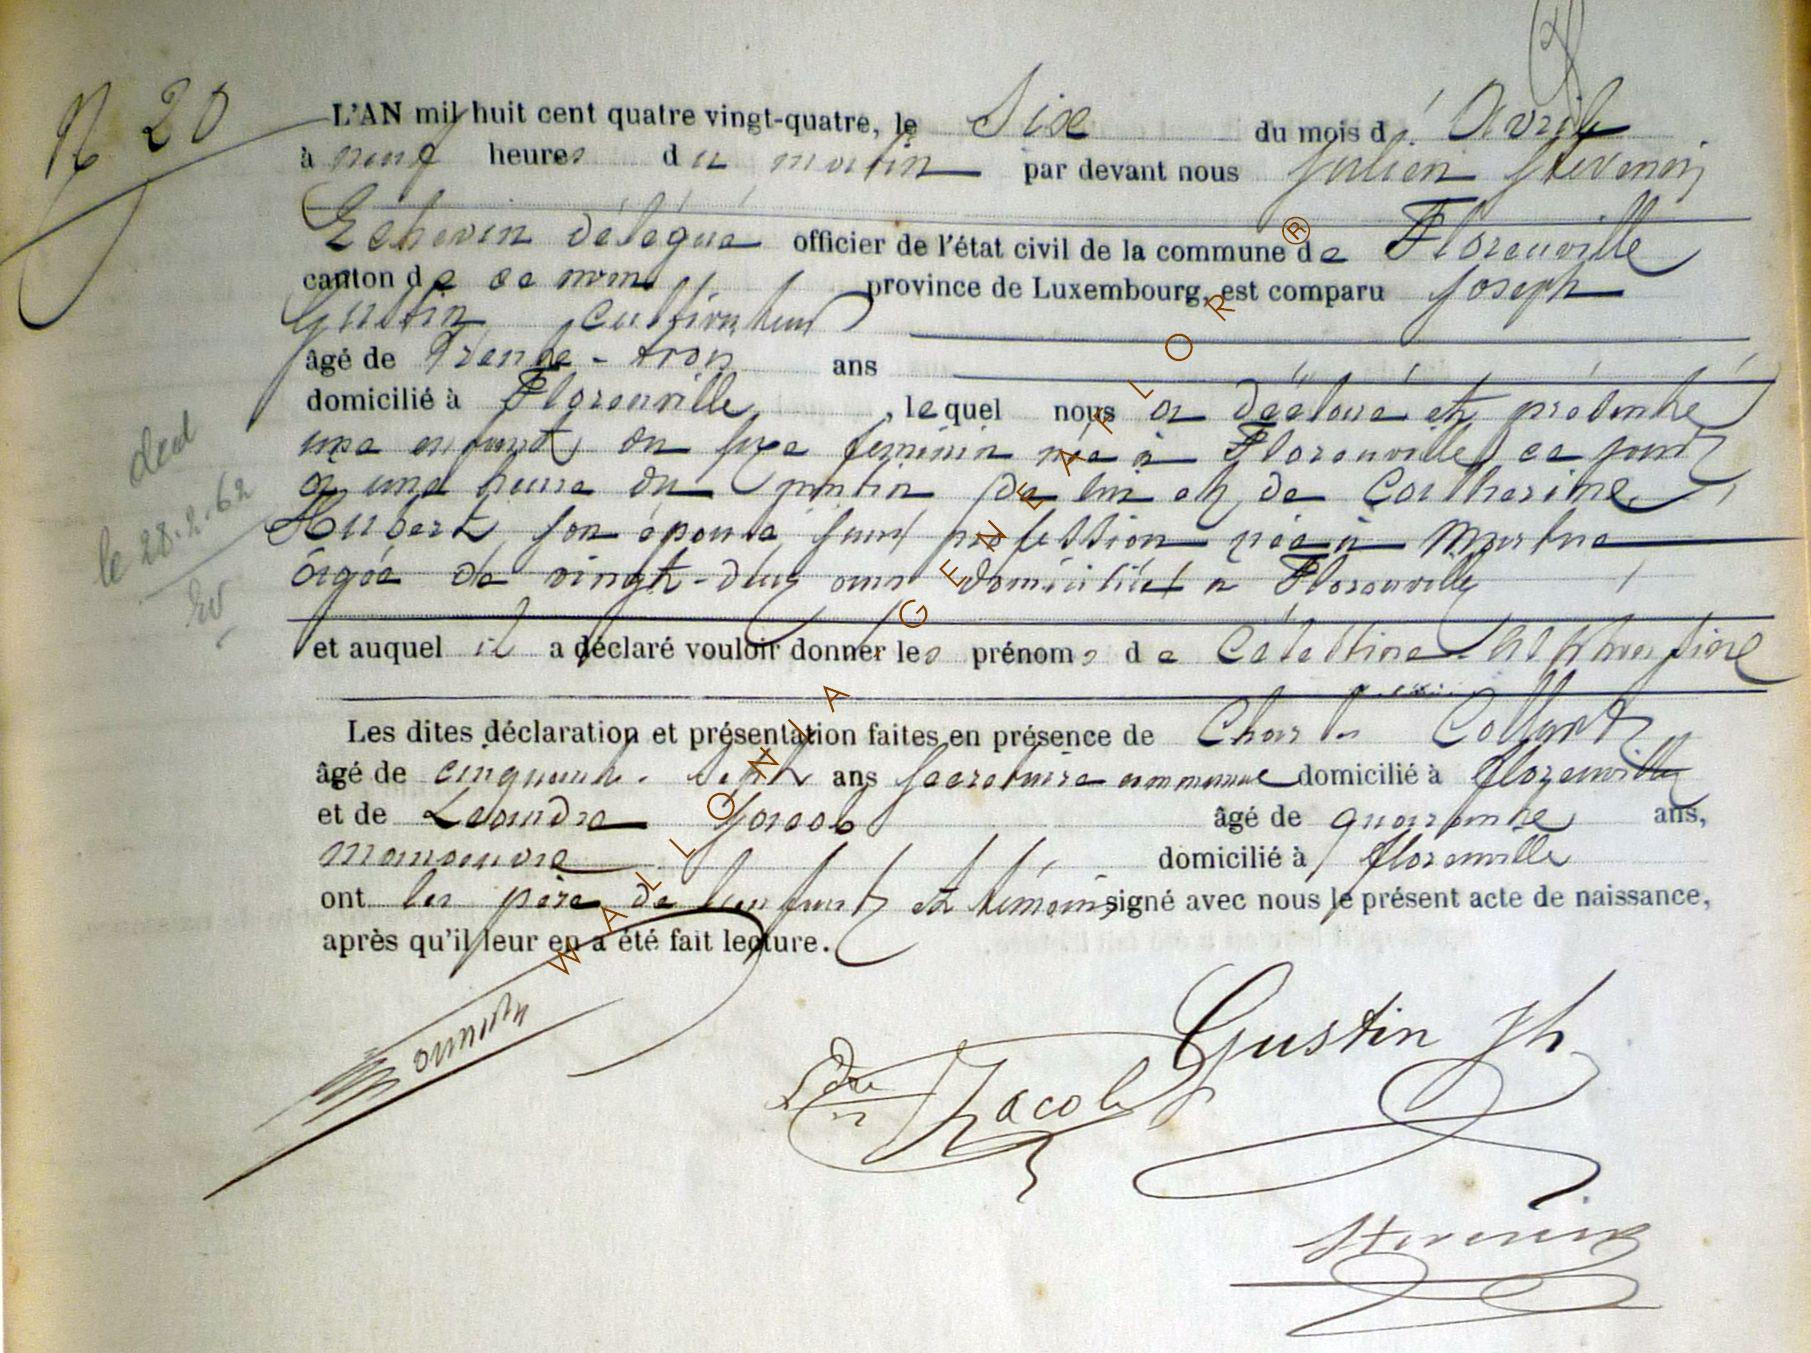 N 20
L'AN mil huit cent quatre vingt-quatre, le Six du mois d'Avril
à neuf heures du matin par devant nous Julien Stevenin
Echevin délégué officier de l'état civil de la commune de Florenville
canton de ce nom province de Luxembourg, est comparu Joseph
Gustin cultivateur
âgé de Trente-trois ans
domicilié à Florenville, lequel nous a déclaré et présenté
une enfant du sexe féminin née à Florenville ce jour
à une heure du matin de lui et de Catherine
Hubert son épouse sans profession née à
âgée de vingt-deux ans domiciliés à Florenville
et auquel il a déclaré vouloir donner les prénoms de Célestine
Les dites déclaration et présentation faites en présence de Charles Collart
âgé de cinquante-sept ans Secrétaire communal domicilié à Florenville
et de Léandre Jacob âgé de quarante ans,
manoeuvre domicilié à Florenville
ont les père de l'enfant et témoins signé avec nous le présent acte de naissance,
après qu'il leur en a été fait lecture.
décd
le 28.2.62
Gustin Jh
Ldre Jacob
Stevenin
WALLONIA GENEAFLOR ®